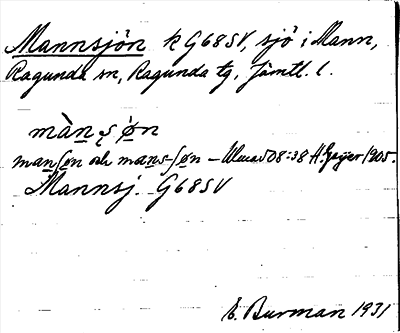 Mannsjön k G68SV, sjö i Mann,
Ragunda sn, Ragunda tg, Jämtl. l.
màn̲ş ø̀n
man̲ʃøn och man̲s-ʃøn – 508:38 H. Geijer 1905.
Mannsj. G68SV
E. Burman 1931